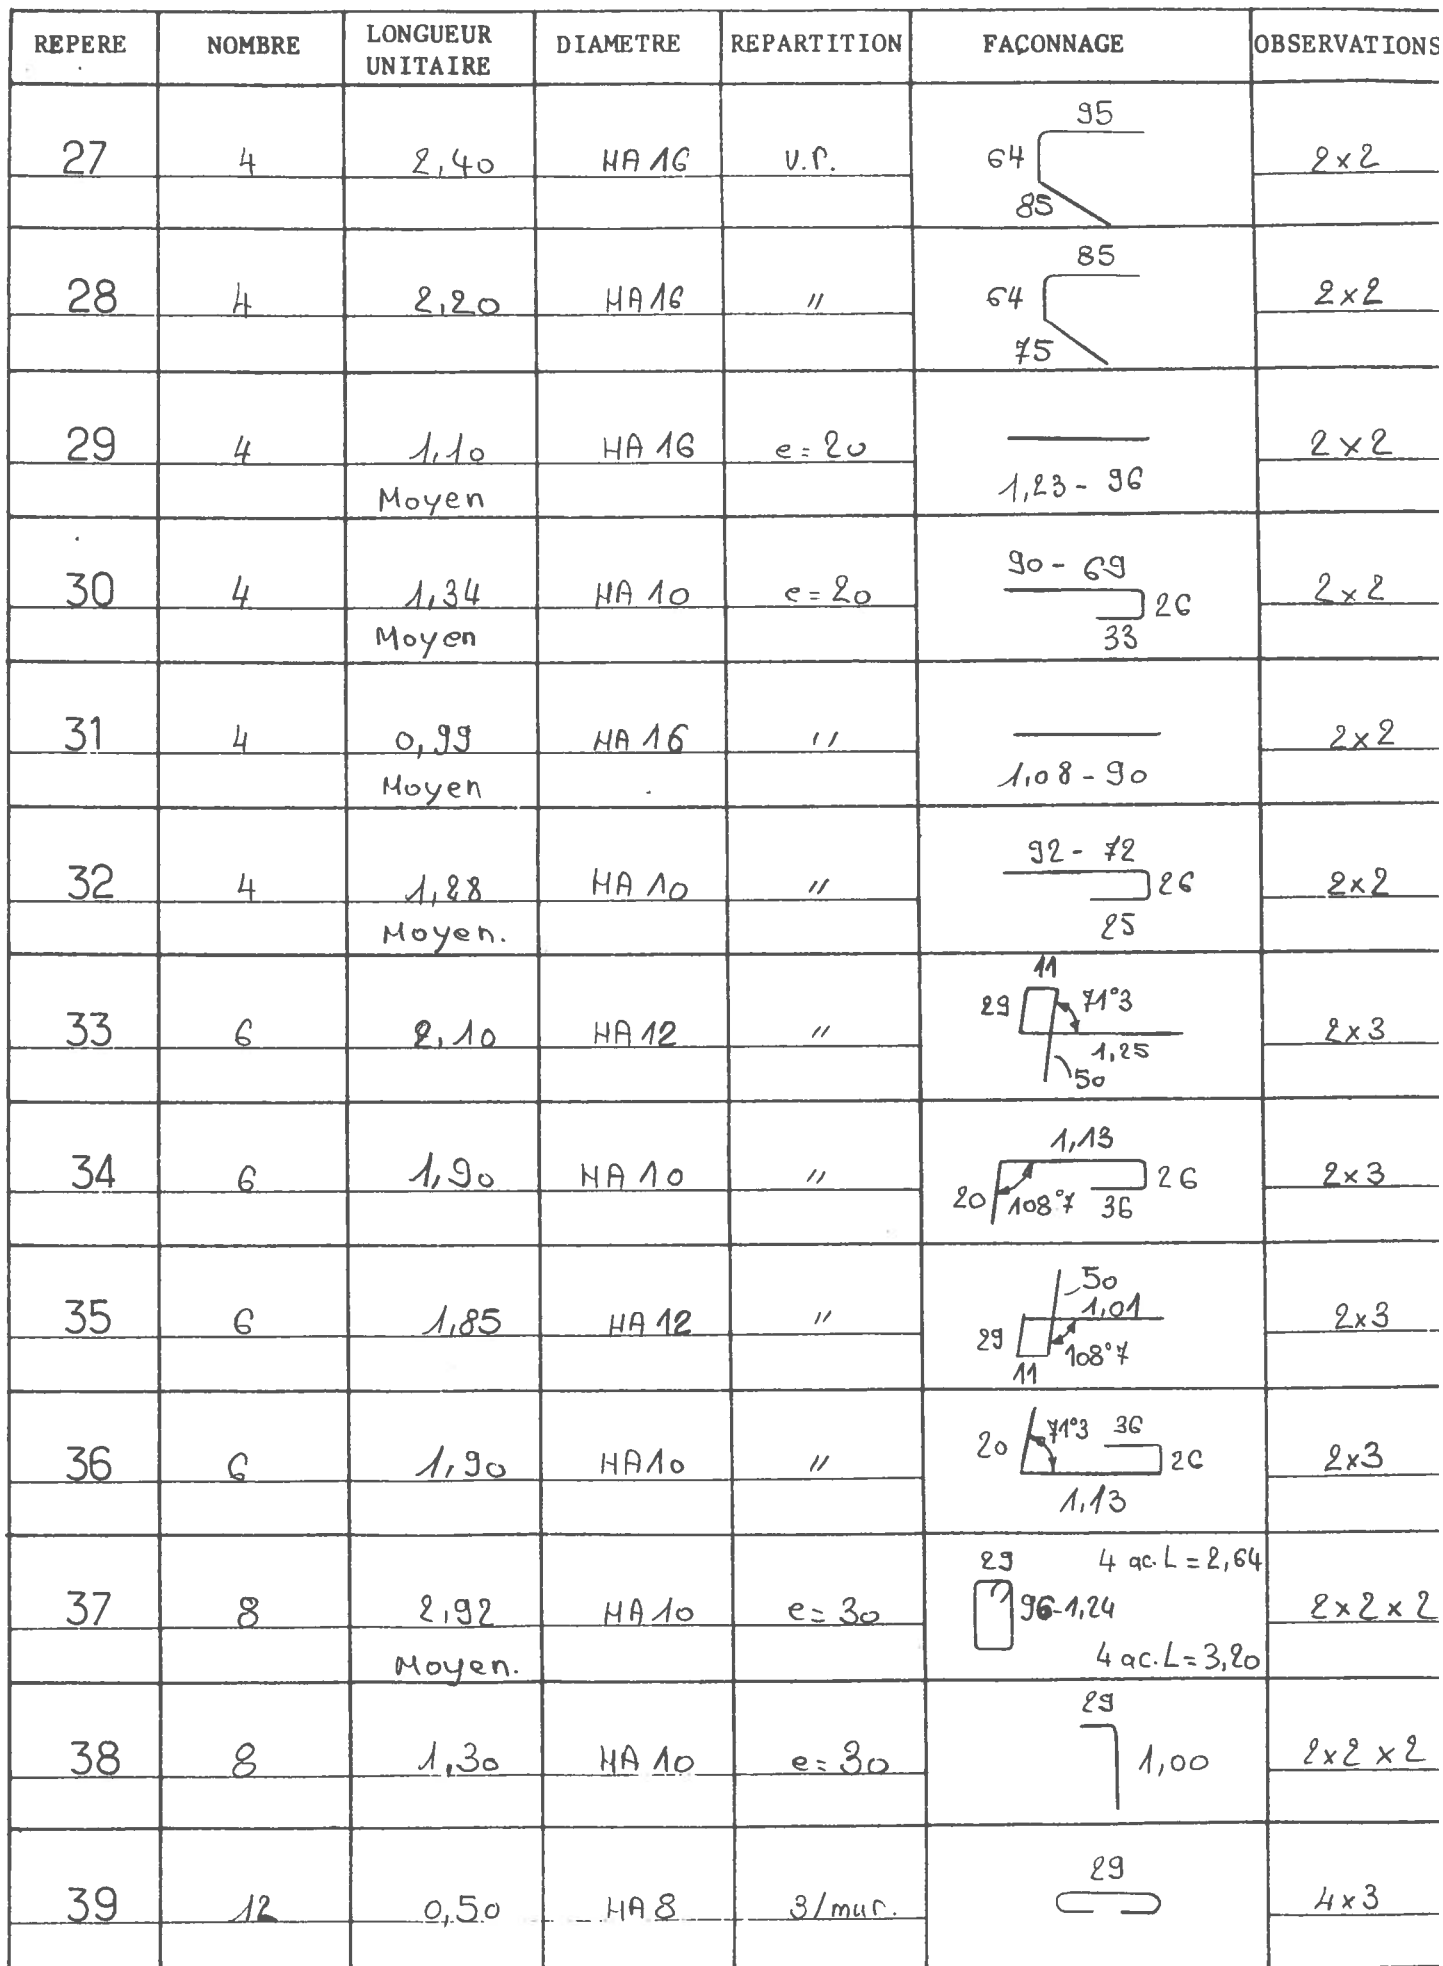 REPERE NOMBRE LONGUEUR UNITAIRE DIAMETRE REPARTITION FAÇONNAGE OBSERVATIONS
27 4 2,40 HA 16 v.r. 95 64 85 2x2
28 4 2,20 HA 16 " 85 64 75 2x2
29 4 1,10 HA 16 e=20 2x2
Moyen 1,23 - 96
30 4 1,34 HA 10 e=20 90 - 69 26 33 2x2
Moyen
31 4 0,99 HA 16 " 2x2
Moyen 1,08 - 90
32 4 1,28 HA 10 " 92 - 72 26 25 2x2
Moyen.
33 6 2,10 HA 12 " 11 29 71°3 1,25 50 2x3
34 6 1,90 HA 10 " 1,13 26 20 108°7 36 2x3
35 6 1,85 HA 12 " 50 1,01 29 108°7 11 2x3
36 6 1,90 HA 10 " 20 71°3 36 26 1,13 2x3
37 8 2,92 HA 10 e=30 29 4 ac. L = 2,64 96-1,24 2x2x2
Moyen. 4 ac. L = 3,20
38 8 1,30 HA 10 e=30 29 1,00 2x2x2
39 12 0,50 HA 8 3/mur. 29 4x3